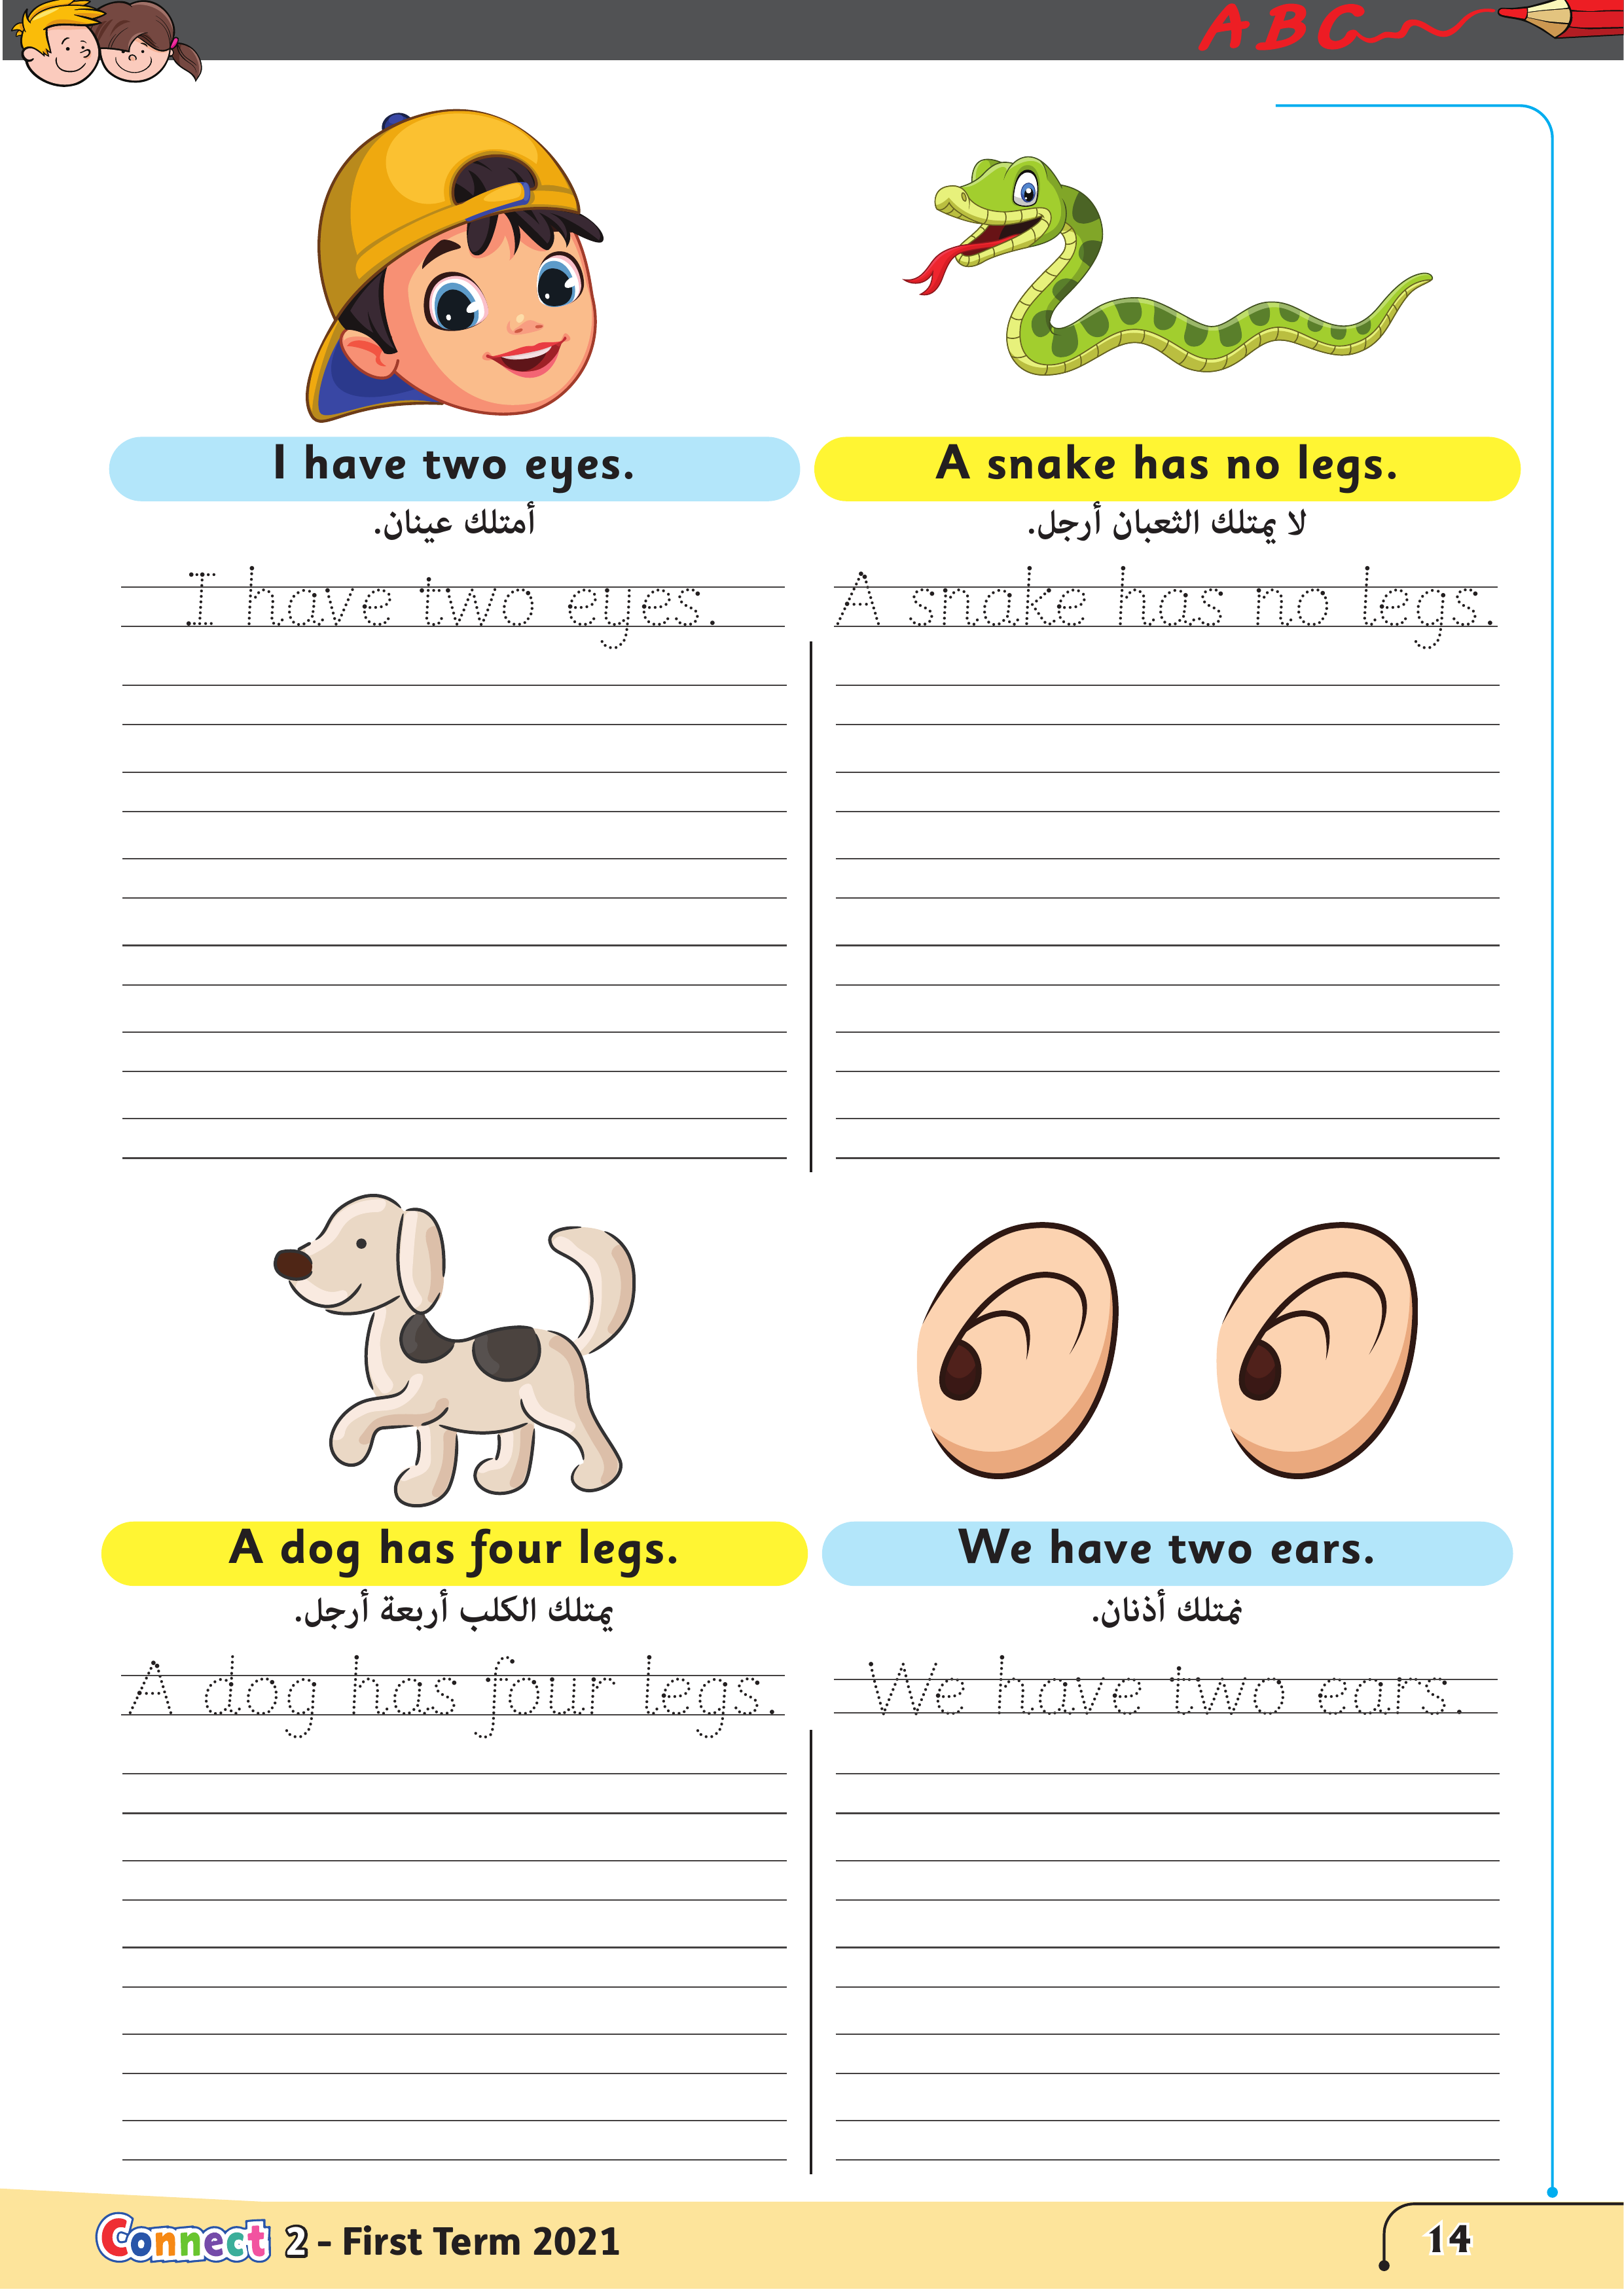 ABC
I have two eyes.
أمتلك عينان.
I have two eyes.
A snake has no legs.
لا يمتلك الثعبان أرجل.
A snake has no legs.
A dog has four legs.
يمتلك الكلب أربعة أرجل.
A dog has four legs.
We have two ears.
نمتلك أذنان.
We have two ears.
Connect 2 - First Term 2021
14